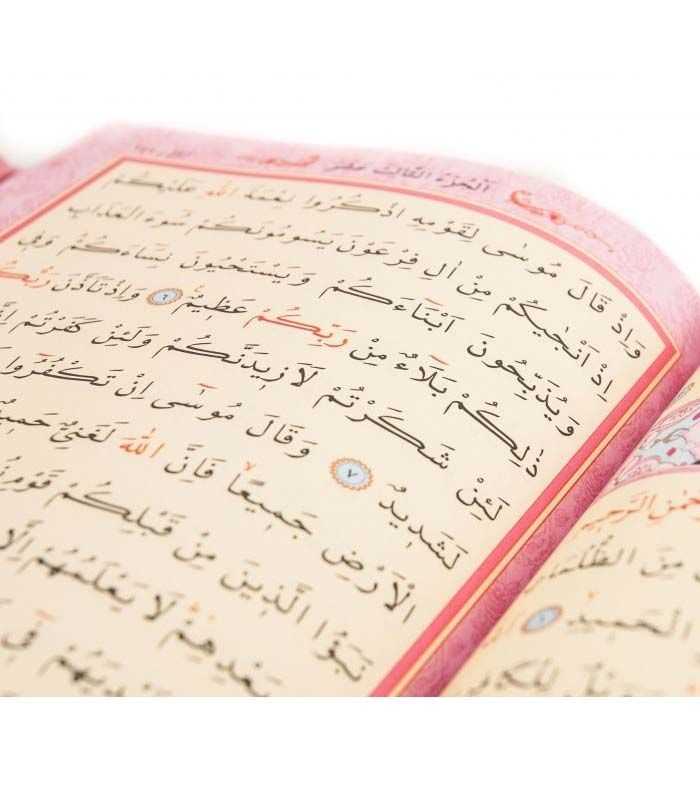 اَلْجُزْءُ الثَّالِثَ عَشَرَ
وَاِذْ قَالَ مُوسٰى لِقَوْمِهِ اذْكُرُوا نِعْمَةَ اللّٰهِ عَلَيْكُمْ
اِذْ اَنْجٰيكُمْ مِنْ اٰلِ فِرْعَوْنَ يَسُومُونَكُمْ سُٓوءَ الْعَذَابِ
وَيُذَبِّحُونَ اَبْنَٓاءَكُمْ وَيَسْتَحْيُونَ نِسَٓاءَكُمْ وَفٖى
ذٰلِكُمْ بَلَٓاءٌ مِنْ رَبِّكُمْ عَظٖيمٌ ٦ وَاِذْ تَاَذَّنَ رَبُّكُمْ
لَئِنْ شَكَرْتُمْ لَاَزٖيدَنَّكُمْ وَلَئِنْ كَفَرْتُمْ
لَشَدٖيدٌ ٧ وَقَالَ مُوسٰٓى اِنْ تَكْفُرُٓوا
الْاَرْضِ جَمٖيعًا فَاِنَّ اللّٰهَ لَغَنِىٌّ حَمٖيدٌ
نَبَؤُا الَّذٖينَ مِنْ قَبْلِكُمْ قَوْمِ
بَعْدِهِمْ لَا يَعْلَمُهُمْ اِلَّا
فٖٓى
الرَّحٖيمِ
مِنَ الظُّلُمَاتِ
الْحَمٖيدِ